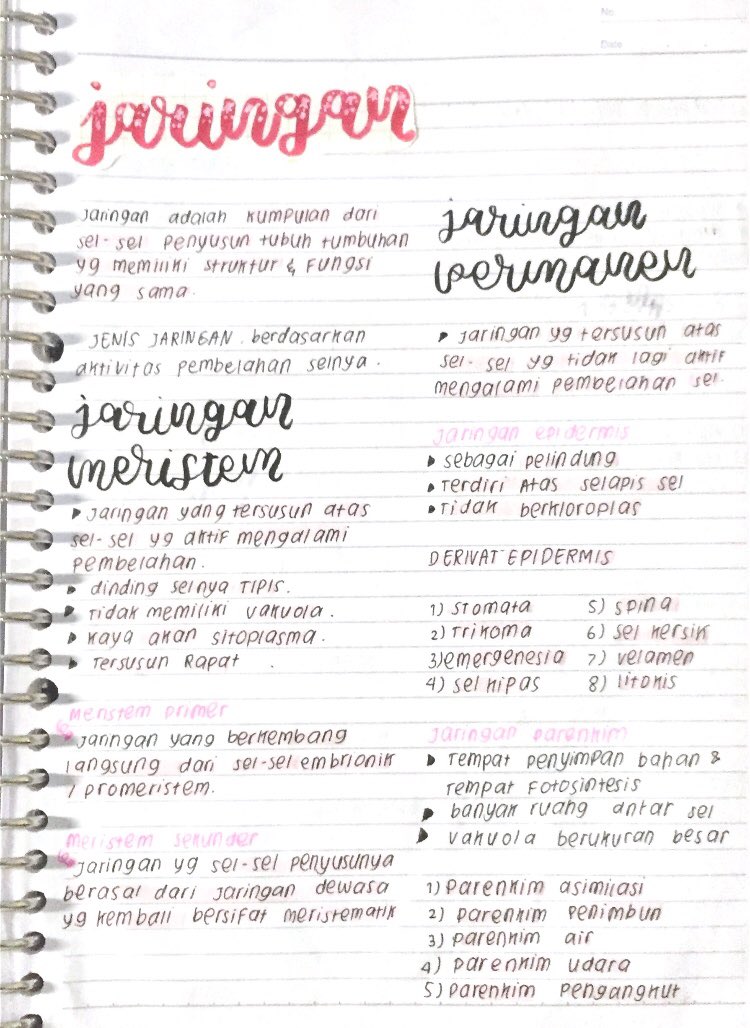 No
Date
jaringan
jaringan adalah kumpulan dari
sel-sel penyusun tubuh tumbuhan
yg memiliki struktur & fungsi
yang sama.
JENIS JARINGAN. berdasarkan
aktivitas pembelahan selnya.
jaringan
meristem
jaringan yang tersusun atas
sel-sel yg aktif mengalami
pembelahan.
dinding selnya TIPIS.
Tidak memiliki vakuola.
kaya akan sitoplasma.
Tersusun Rapat .
Meristem primer
jaringan yang berkembang
langsung dari sel-sel embrionik
/ promeristem.
Meristem sekunder
jaringan yg sel-sel penyusunya
berasal dari jaringan dewasa
yg kembali bersifat meristematik
jaringan
permanen
jaringan yg tersusun atas
sel-sel yg tidak lagi aktif
mengalami pembelahan sel.
jaringan epidermis
sebagai pelindung
Terdiri Atas selapis sel
Tidak berkloroplas
DERIVAT EPIDERMIS
1) Stomata 5) spina
2) Trikoma 6) sel kersik
3) emergenesia 7) velamen
4) sel kipas 8) litokis
jaringan parenkim
Tempat penyimpan bahan &
tempat fotosintesis
banyak ruang antar sel
vakuola berukuran besar
1) parenkim asimilasi
2) parenkim penimbun
3) parenkim air
4) parenkim udara
5) parenkim pengangkut